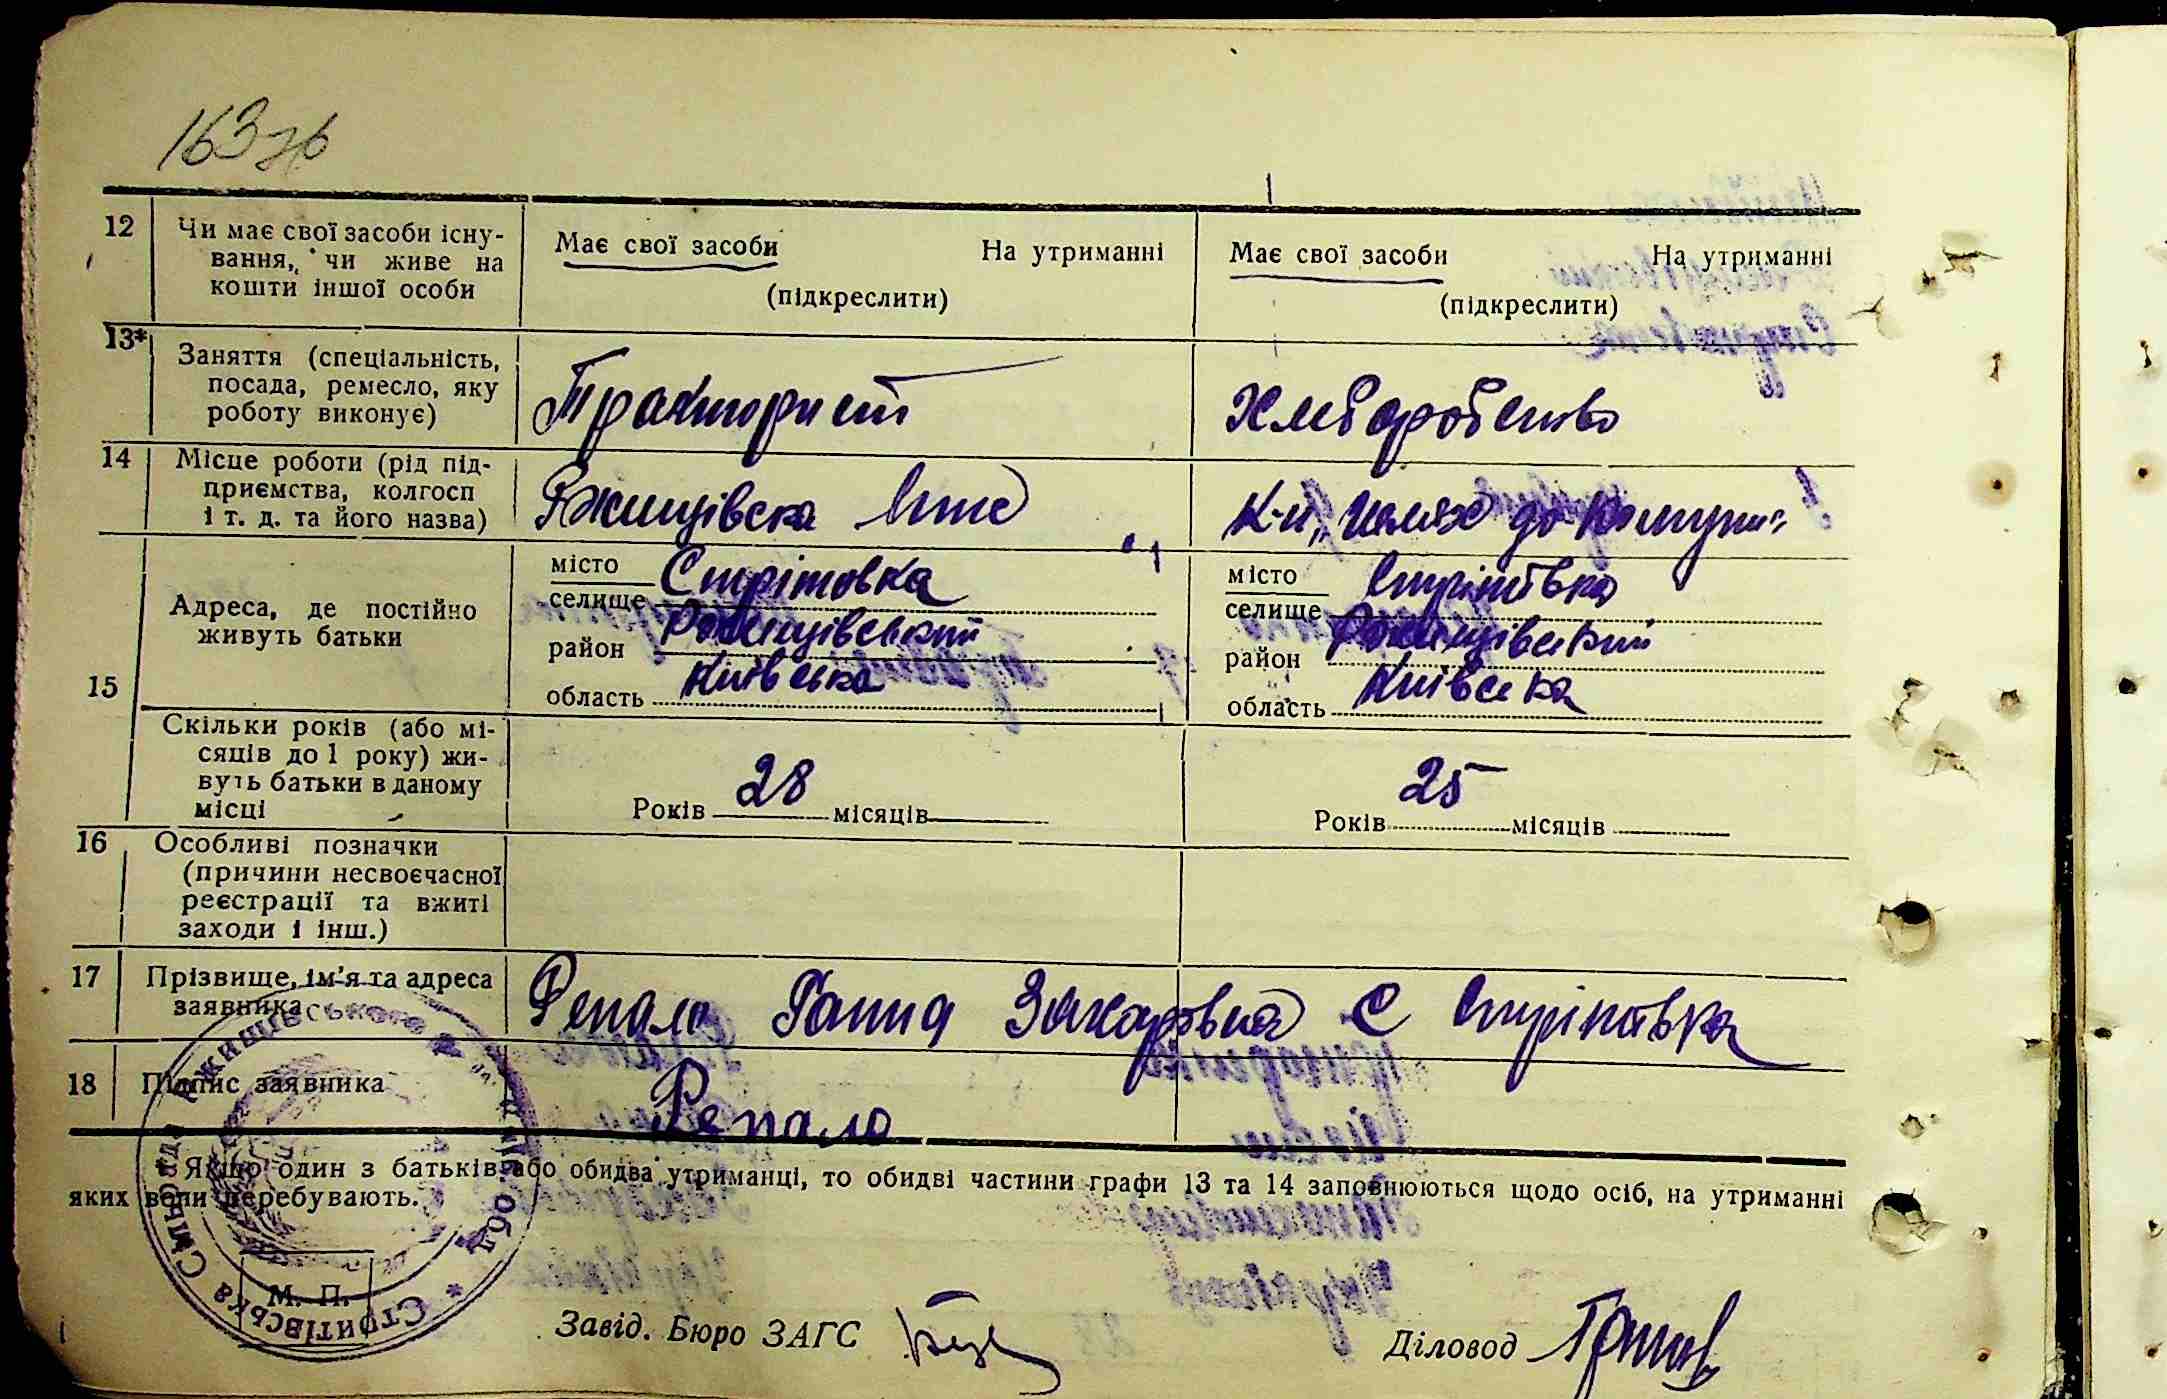 163зв
12 Чи має свої засоби існу-
вання, чи живе на
кошти іншої особи
Має свої засоби На утриманні
(підкреслити)
Має свої засоби На утриманні
(підкреслити)
13* Заняття (спеціальність,
посада, ремесло, яку
роботу виконує)
Тракторист
Хлеборобство
14 Місце роботи (рід під-
приємства, колгосп
і т. д. та його назва)
Ржищівска МТС
К-п „Шлях до Комуни"
15 Адреса, де постійно
живуть батьки
місто
селище Стрітовка
район Ржищівський
область Київська
місто
селище Стрітівка
район Ржищівский
область Київска
Скільки років (або мі-
сяців до 1 року) жи-
вуть батьки в даному
місці
Років 28 місяців
Років 25 місяців
16 Особливі позначки
(причини несвоєчасної
реєстрації та вжиті
заходи і інш.)
17 Прізвище, ім'я та адреса
заявника
Репало Ганна Захаровна С Стрітовка
18 Підпис заявника
Репало
* Якщо один з батьків або обидва утриманці, то обидві частини графи 13 та 14 заповнюються щодо осіб, на утриманні
яких вони перебувають.
М. П.
Завід. Бюро ЗАГС
Діловод